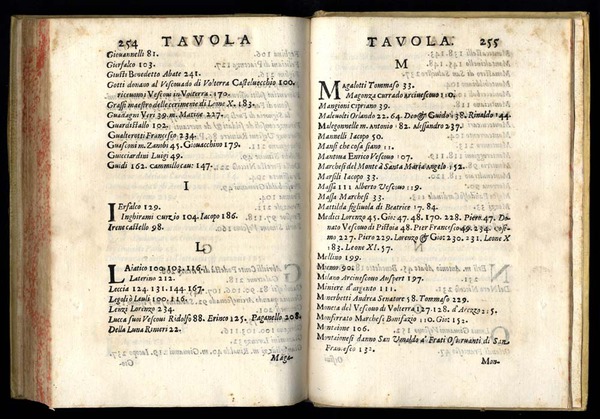 254 TAVOLA
Giouannelli 81.
Gierfalco 103.
Giusti Benedetto Abate 241.
Gotti donano al Vescouado di Volterra Casteluecchio 100.
riceuono Vescoui in Volterra. 170.
Grassi maestro delle cerimonie di Leone X. 183.
Guadagni Veri 39. m. Matteo 227.
Guardistallo 102.
Gualterotti Francesco 234.
Guasconi m. Zanobi 45. Giouacchino 179.
Gucciardini Luigi 49.
Guidi 162. Cammillo cau: 147.
I
IErfalco 129.
Inghirami Curzio 104. Iacopo 186.
Irene castello 98.
L
LAiatico 100. 103. 116.
Laterino 212.
Leccia 124. 131. 144. 167.
Legoli ò Lauli 100. 116.
Lenzi Lorenzo 234.
Lucca suoi Vescoui Ridolfo 88. Errico 125. Paganello 208.
Della Luna Rinieri 22.
Maga-
TAVOLA. 255
M
MAgalotti Tommaso 33.
Magonza Currado arciuescouo 110.
Mangioni Cipriano 39.
Maleuolti Orlando 22. 64. Deo & Guido 138. Rinaldo 144.
Malegonnelle m. Antonio 182. Alessandro 237.
Mannelli Iacopo 50.
Mansi che cosa siano 11.
Mantoua Enrico Vescouo 107.
Marchesi del Monte à Santa Maria Angelo 152.
Marsili Iacopo 33.
Massa 111 Alberto Vescouo 119.
Massa Marchesi 33.
Mattilda figliuola di Beatrice 17. 84.
Medici Lorenzo 45. Gio: 47. 48. 170. 228. Piero 47. Do-
nato Vescouo di Pistoia 48. Pier Francesco 49. 234. Cosi-
mo 227. Piero 229. Lorenzo & Gio: 230. 231. Leone X
183. Leone XI. 57.
Mellino 199.
Memo 90.
Milano Arciuescouo Ausperto 197.
Miniere d'argento 111.
Minerbetti Andrea Senatore 58. Tommaso 229.
Moneta del Vescouo di Volterra 127. 128. d'Arezzo 215.
Monferrato Marchese Bonifazio 110. Gio: 15.
Monteione 106.
Monteionesi danno San Viualdo a' Frati Osseruanti di San
Francesco 132.
Mon-